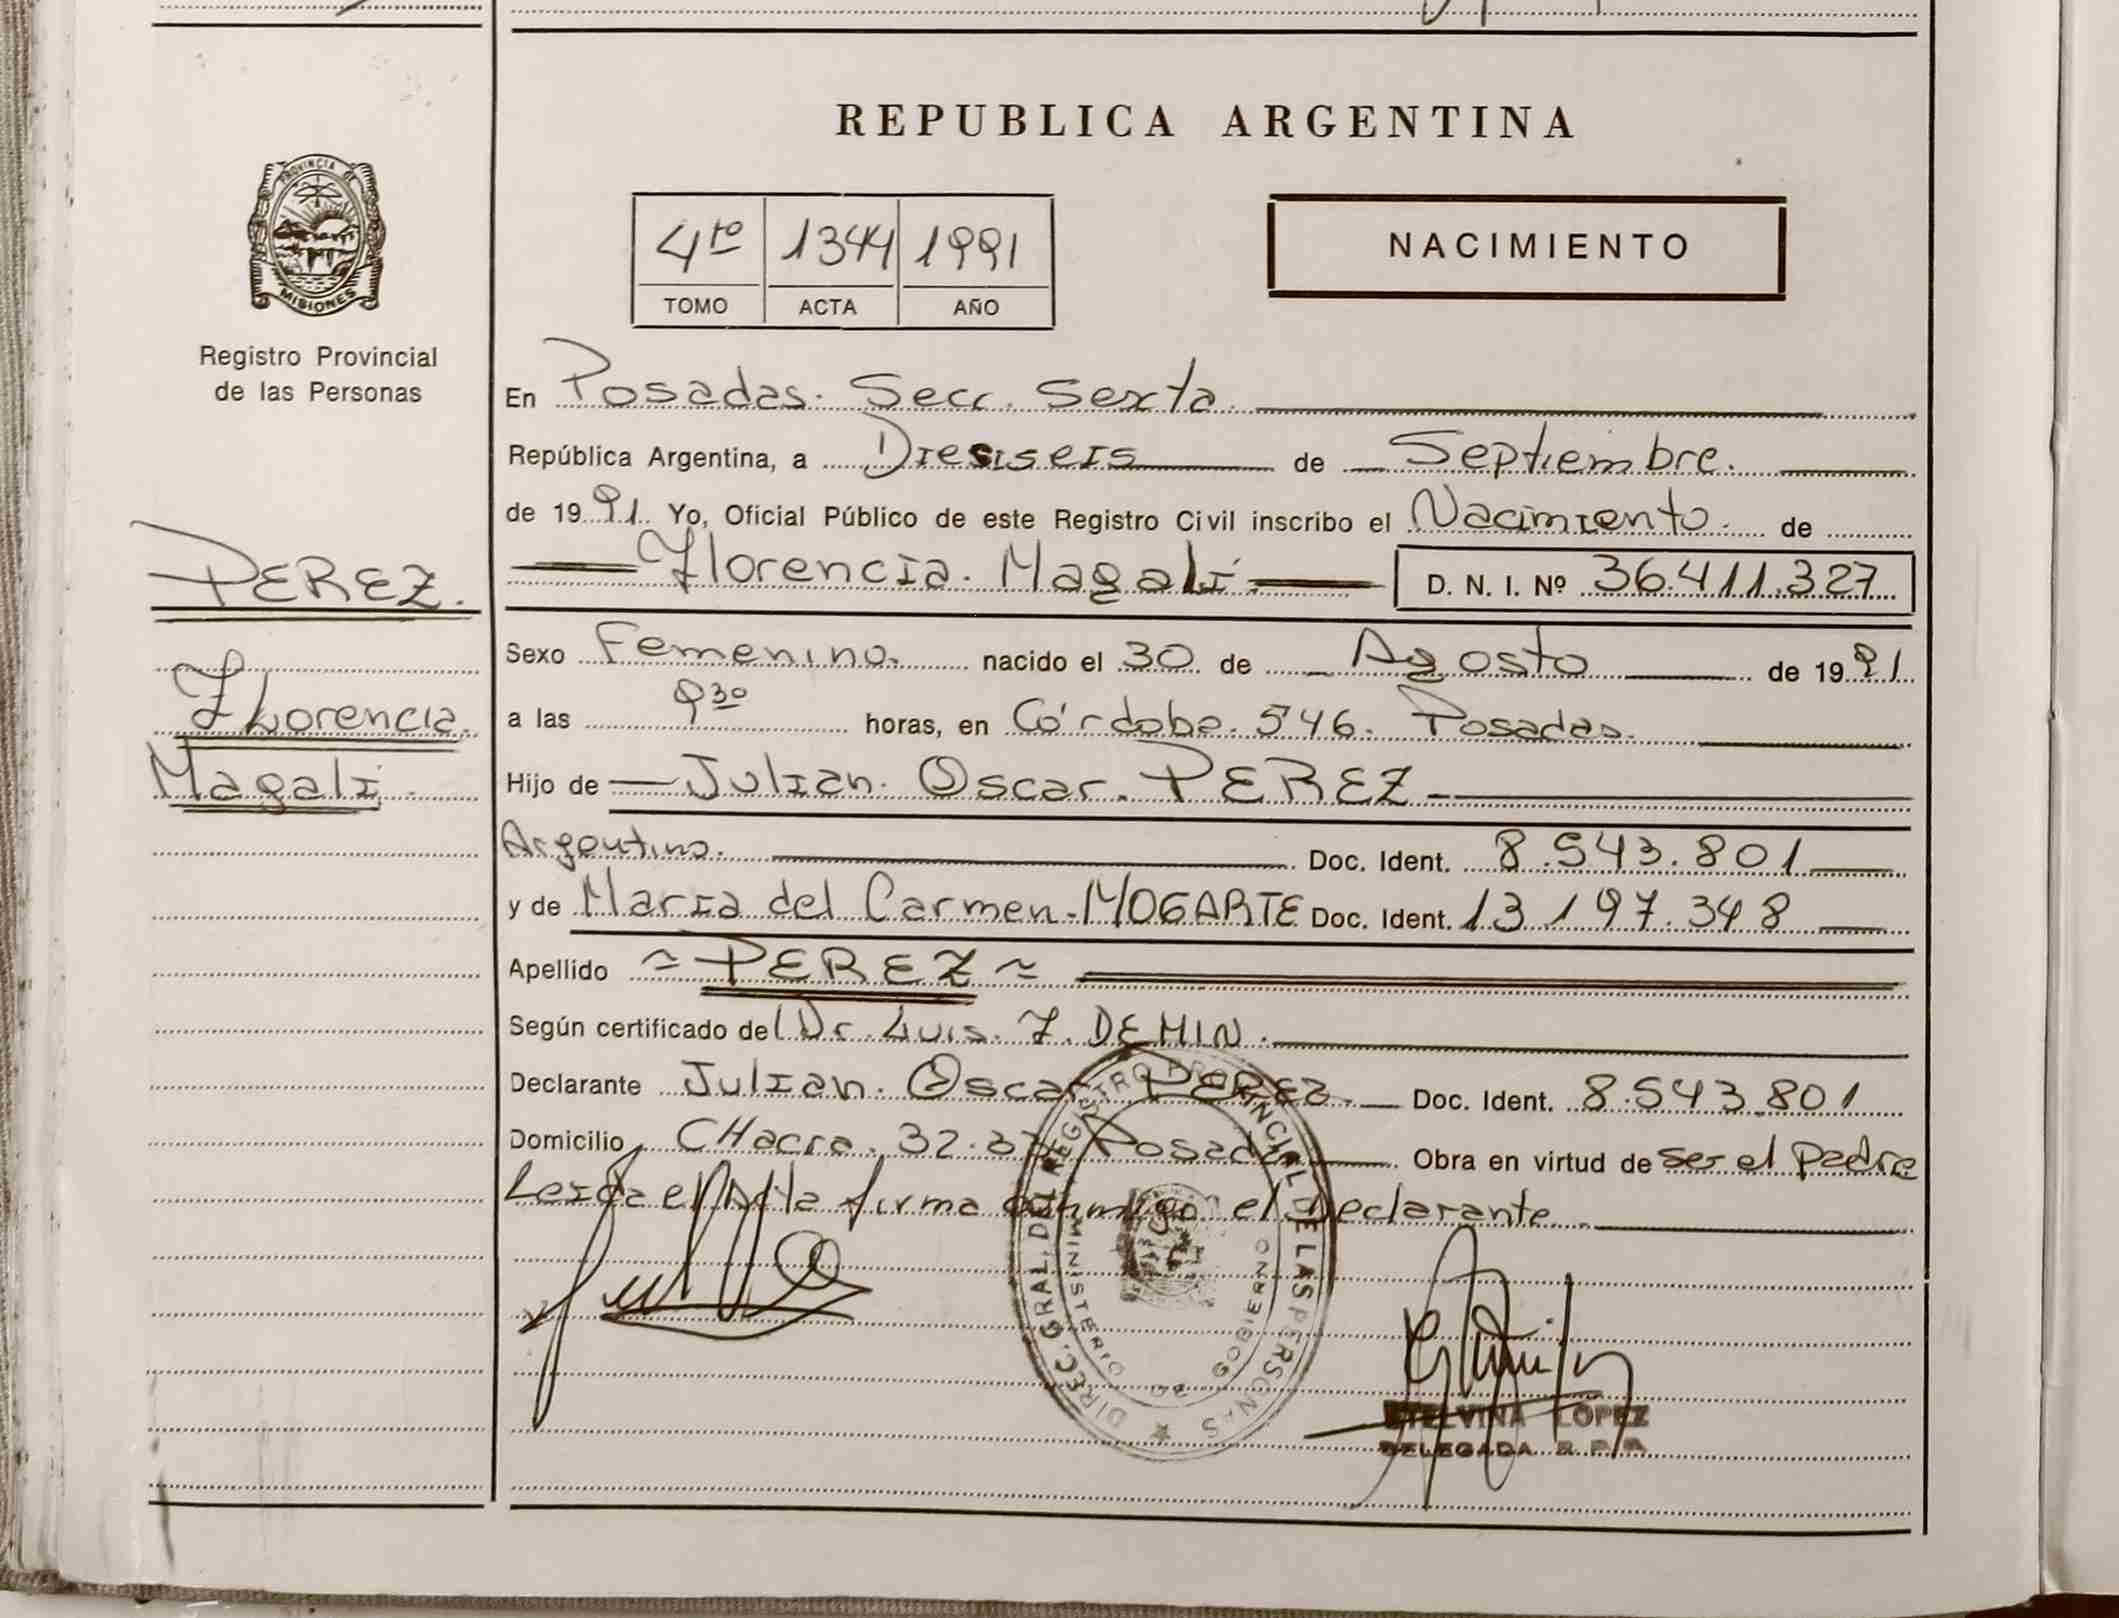 REPUBLICA ARGENTINA
PROVINCIA DE
MISIONES
Registro Provincial
de las Personas
4to 1344 1991
TOMO ACTA AÑO
NACIMIENTO
En Posadas. Secc. Sexta.
República Argentina, a Diesiseis de Septiembre.
de 1991. Yo, Oficial Público de este Registro Civil inscribo el Nacimiento. de
PEREZ.
Florencia. Magali. D. N. I. Nº 36.411.327
Sexo Femenino. nacido el 30 de Agosto de 1991
Florencia.
a las 9 30 horas, en Córdoba. 546. Posadas.
Magali.
Hijo de Julian. Oscar. PEREZ
Argentino. Doc. Ident. 8.543.801
y de Maria del Carmen. MOGARTE Doc. Ident. 13.197.348
Apellido PEREZ
Según certificado del Dr. Luis. F. DEMIN.
Declarante Julian. Oscar PEREZ. Doc. Ident. 8.543.801
Domicilio CHacra. 32-33 Posadas Obra en virtud de ser el padre
Leida el Acta firma conmigo el Declarante.
DIREC. GRAL. DEL REGISTRO PROVINCIAL DE LAS PERSONAS
MINISTERIO DE GOBIERNO
ETELVINA LOPEZ
DELEGADA R. P. P.